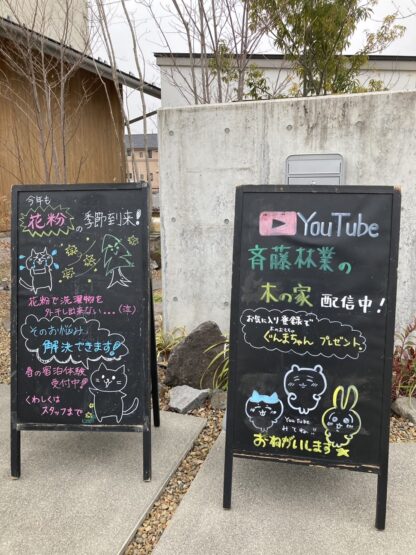 今年も
花粉の季節到来!
花粉で洗濯物を
外干し出来ない...(泣)
そのお悩み
解決できます!
春の宿泊体験
受付中!
くわしくは
スタッフまで
YouTube
斉藤林業の
木の家 配信中!
お気に入り登録で
ぐんまちゃん プレゼント
YouTube
みてね!!
おねがいしまう